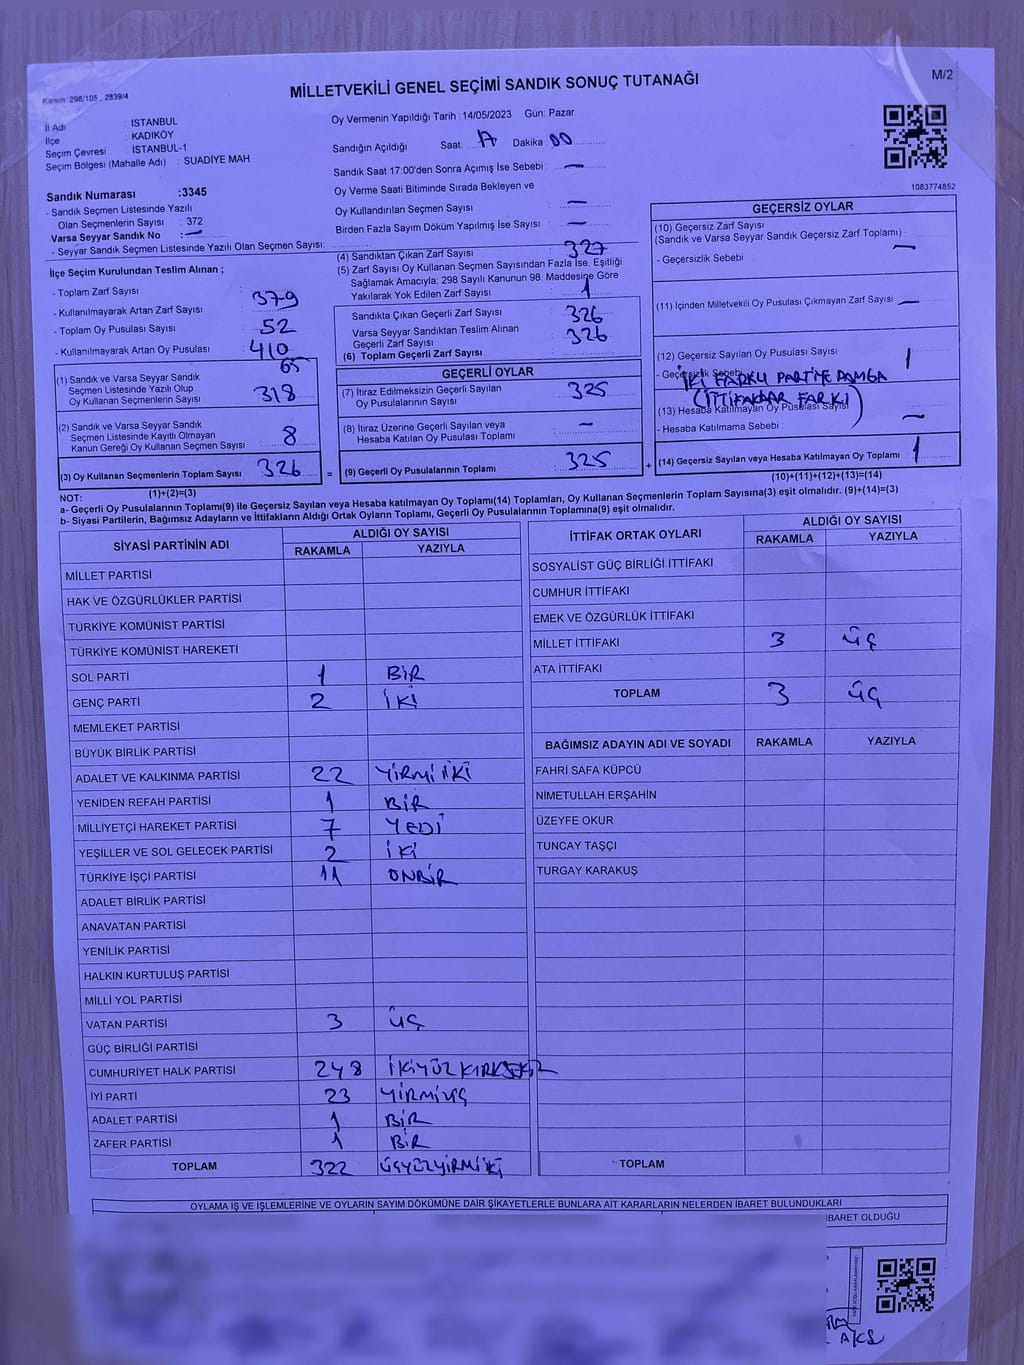 MİLLETVEKİLİ GENEL SEÇİMİ SANDIK SONUÇ TUTANAĞI
M/2
Kanun: 298/105 , 2839/4
İl Adı : İSTANBUL
İlçe : KADIKÖY
Seçim Çevresi : İSTANBUL-1
Seçim Bölgesi (Mahalle Adı) : SUADİYE MAH
Sandık Numarası :3345
- Sandık Seçmen Listesinde Yazılı
Olan Seçmenlerin Sayısı : 372
Varsa Seyyar Sandık No : —
- Seyyar Sandık Seçmen Listesinde Yazılı Olan Seçmen Sayısı:
İlçe Seçim Kurulundan Teslim Alınan ;
- Toplam Zarf Sayısı : 379
- Kullanılmayarak Artan Zarf Sayısı : 52
- Toplam Oy Pusulası Sayısı : 410
- Kullanılmayarak Artan Oy Pusulası : 65
(1) Sandık ve Varsa Seyyar Sandık
Seçmen Listesinde Yazılı Olup
Oy Kullanan Seçmenlerin Sayısı 318
(2) Sandık ve Varsa Seyyar Sandık
Seçmen Listesinde Kayıtlı Olmayan
Kanun Gereği Oy Kullanan Seçmen Sayısı 8
(3) Oy Kullanan Seçmenlerin Toplam Sayısı 326 =
(1)+(2)=(3)
Oy Vermenin Yapıldığı Tarih :14/05/2023 Gün: Pazar
Sandığın Açıldığı Saat: 17 Dakika: 00
Sandık Saat 17:00'den Sonra Açımış İse Sebebi : —
Oy Verme Saati Bitiminde Sırada Bekleyen ve
Oy Kullandırılan Seçmen Sayısı : —
Birden Fazla Sayım Döküm Yapılmış İse Sayısı : —
(4) Sandıktan Çıkan Zarf Sayısı : 327
(5) Zarf Sayısı Oy Kullanan Seçmen Sayısından Fazla İse, Eşitliği
Sağlamak Amacıyla; 298 Sayılı Kanunun 98. Maddesine Göre
Yakılarak Yok Edilen Zarf Sayısı : 1
Sandıkta Çıkan Geçerli Zarf Sayısı : 326
Varsa Seyyar Sandıktan Teslim Alınan
Geçerli Zarf Sayısı : 326
(6) Toplam Geçerli Zarf Sayısı :
GEÇERLİ OYLAR
(7) İtiraz Edilmeksizin Geçerli Sayılan
Oy Pusulalarının Sayısı : 325
(8) İtiraz Üzerine Geçerli Sayılan veya
Hesaba Katılan Oy Pusulası Toplamı : —
(9) Geçerli Oy Pusulalarının Toplamı : 325 +
1083774852
GEÇERSİZ OYLAR
(10) Geçersiz Zarf Sayısı
(Sandık ve Varsa Seyyar Sandık Geçersiz Zarf Toplamı) : —
- Geçersizlik Sebebi :
(11) İçinden Milletvekili Oy Pusulası Çıkmayan Zarf Sayısı : —
(12) Geçersiz Sayılan Oy Pusulası Sayısı : 1
- Geçersizlik Sebebi
İKİ FARKLI PARTİYE DAMGA
(İTTİFAKLAR FARKI)
(13) Hesaba Katılmayan Oy Pusulası Sayısı —
- Hesaba Katılmama Sebebi :
(14) Geçersiz Sayılan veya Hesaba Katılmayan Oy Toplamı : 1
(10)+(11)+(12)+(13)=(14)
NOT:
a- Geçerli Oy Pusulalarının Toplamı(9) ile Geçersiz Sayılan veya Hesaba katılmayan Oy Toplamı(14) Toplamları, Oy Kullanan Seçmenlerin Toplam Sayısına(3) eşit olmalıdır. (9)+(14)=(3)
b- Siyasi Partilerin, Bağımsız Adayların ve İttifakların Aldığı Ortak Oyların Toplamı, Geçerli Oy Pusulalarının Toplamına(9) eşit olmalıdır.
SİYASİ PARTİNİN ADI ALDIĞI OY SAYISI
RAKAMLA YAZIYLA
MİLLET PARTİSİ
HAK VE ÖZGÜRLÜKLER PARTİSİ
TÜRKİYE KOMÜNİST PARTİSİ
TÜRKİYE KOMÜNİST HAREKETİ
SOL PARTİ 1 BİR
GENÇ PARTİ 2 İKİ
MEMLEKET PARTİSİ
BÜYÜK BİRLİK PARTİSİ
ADALET VE KALKINMA PARTİSİ 22 YİRMİ İKİ
YENİDEN REFAH PARTİSİ 1 BİR
MİLLİYETÇİ HAREKET PARTİSİ 7 YEDİ
YEŞİLLER VE SOL GELECEK PARTİSİ 2 İKİ
TÜRKİYE İŞÇİ PARTİSİ 11 ONBİR
ADALET BİRLİK PARTİSİ
ANAVATAN PARTİSİ
YENİLİK PARTİSİ
HALKIN KURTULUŞ PARTİSİ
MİLLİ YOL PARTİSİ
VATAN PARTİSİ 3 ÜÇ
GÜÇ BİRLİĞİ PARTİSİ
CUMHURİYET HALK PARTİSİ 248 İKİYÜZKIRKSEKİZ
İYİ PARTİ 23 YİRMİÜÇ
ADALET PARTİSİ 1 BİR
ZAFER PARTİSİ 1 BİR
TOPLAM 322 ÜÇYÜZYİRMİİKİ
İTTİFAK ORTAK OYLARI ALDIĞI OY SAYISI
RAKAMLA YAZIYLA
SOSYALİST GÜÇ BİRLİĞİ İTTİFAKI
CUMHUR İTTİFAKI
EMEK VE ÖZGÜRLÜK İTTİFAKI
MİLLET İTTİFAKI 3 ÜÇ
ATA İTTİFAKI
TOPLAM 3 ÜÇ
BAĞIMSIZ ADAYIN ADI VE SOYADI RAKAMLA YAZIYLA
FAHRİ SAFA KÜPCÜ
NİMETULLAH ERŞAHİN
ÜZEYFE OKUR
TUNCAY TAŞÇI
TURGAY KARAKUŞ
TOPLAM
OYLAMA İŞ VE İŞLEMLERİNE VE OYLARIN SAYIM DÖKÜMÜNE DAİR ŞİKAYETLERLE BUNLARA AİT KARARLARIN NELERDEN İBARET BULUNDUKLARI
İBARET OLDUĞU